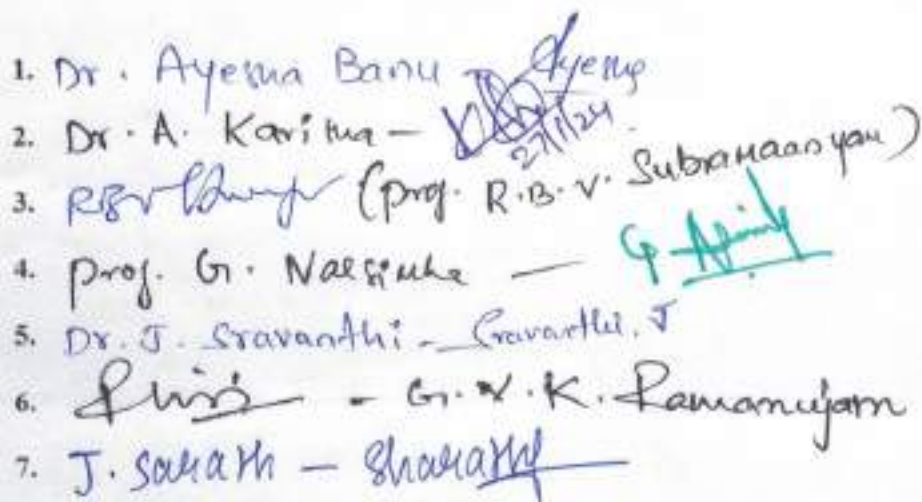 1. Dr. Ayesha Banu - Ayesha
2. Dr. A. Karima - 27/1/24
3. (Prof. R.B.V. Subramaanyam)
4. Prof. G. Narsimha -
5. Dr. J. Sravanthi - Sravanthi. J
6. - G. V. K. Ramanujam
7. J. Sarath - Sharath